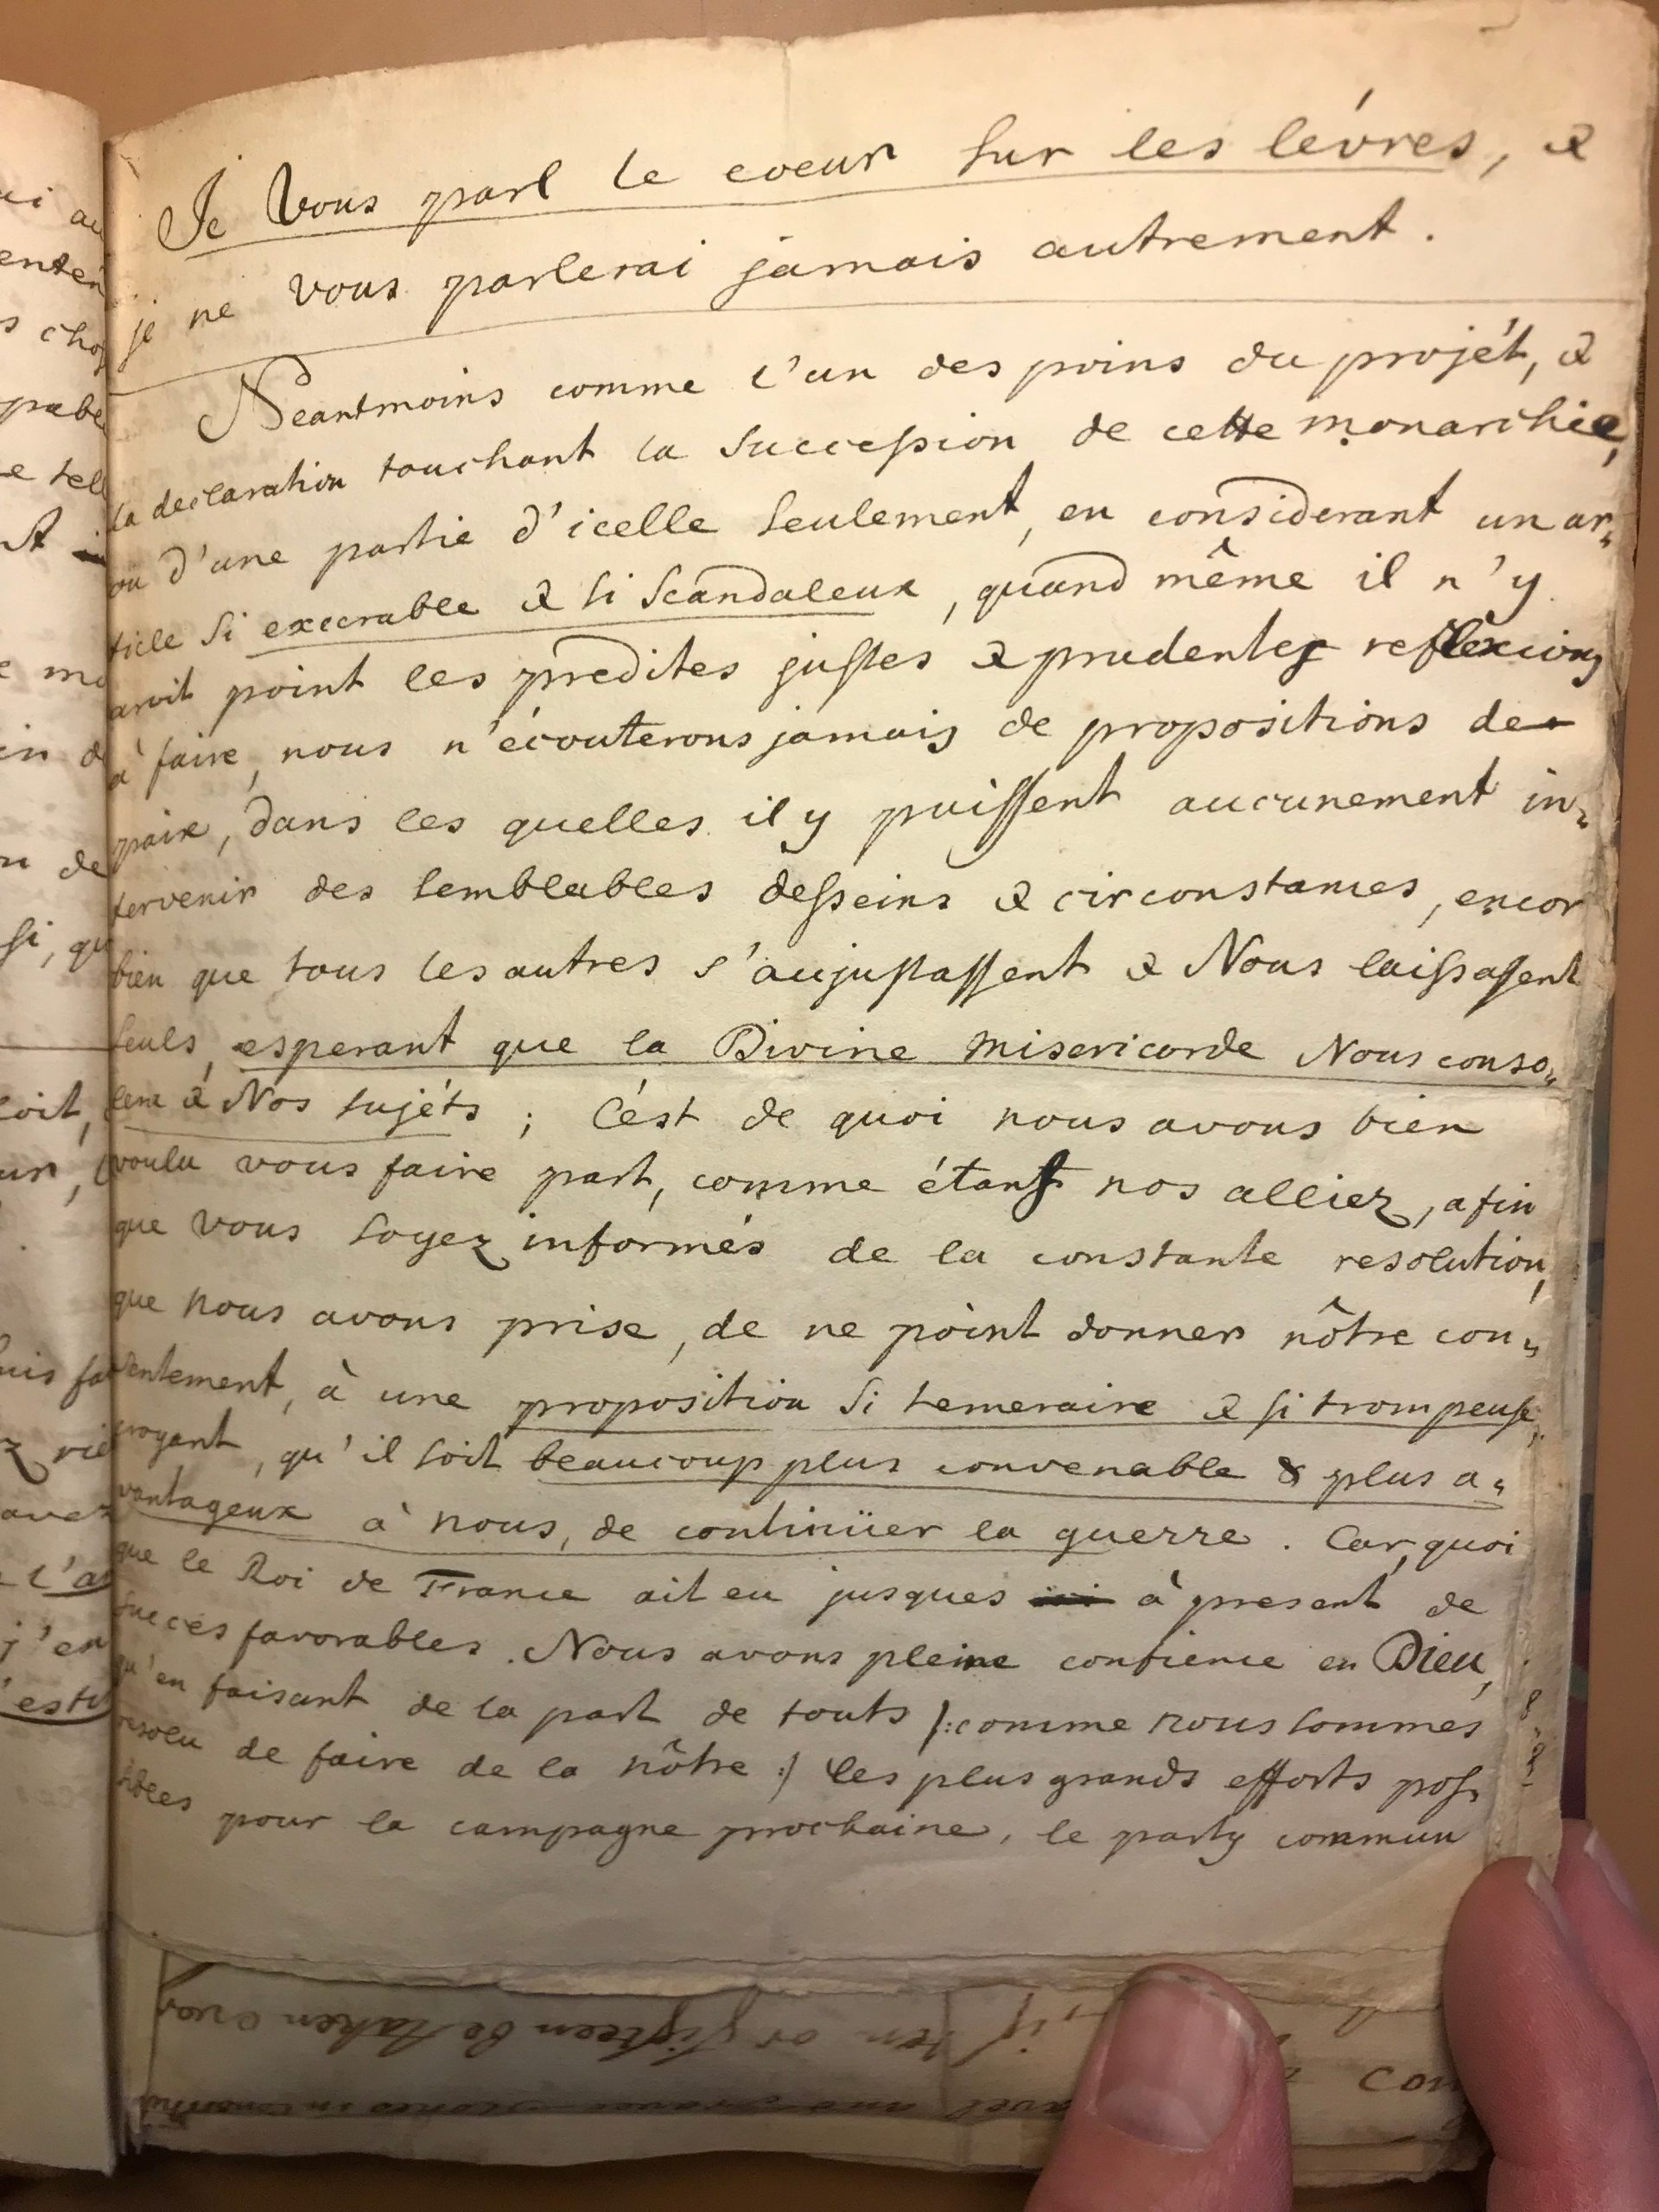 Je Vous parl le coeur sur les lévres, &
je ne vous parlerai jamais autrement.
Neantmoins comme l'un des poins du projét, &
la declaration touchant la succession de cette monarchie,
ou d'une partie d'icelle seulement, en considerant un ar„
ticle si execrable & si scandaleux, quand même il n'y
aroit point les predites justes & prudentes reflexions
à faire, nous n'écouterons jamais de propositions de
paix, dans les quelles il y puissent aucunement in„
tervenir des semblables desseins & circonstances, encor
bien que tous les autres s'aujustassent & Nous laissassent
seuls, esperant que la Divine misericorde Nous conso„
lera & Nos sujéts; C'ést de quoi nous avons bien
voulu vous faire part, comme étant nos alliez, afin
que vous soyez informés de la constante resolution,
que nous avons prise, de ne point donner nôtre con„
sentement, à une proposition si temeraire & si trompeuse,
croyant, qu'il soit beaucoup plus convenable & plus a„
vantageux à nous, de continüer la guerre. Car, quoi
que le Roi de France ait eu jusques à present de
succés favorables. Nous avons pleine confience en Dieu,
qu'en faisant de la part de touts /:comme nous sommes
resolu de faire de la nôtre:/ les plus grands efforts pos„
sibles pour la campagne prochaine, le party commun
ten or fifteen be taken over
con
ui au
enten
s chos
e tell
in d
n de
si, qu
soit,
avez
l'a
j'en